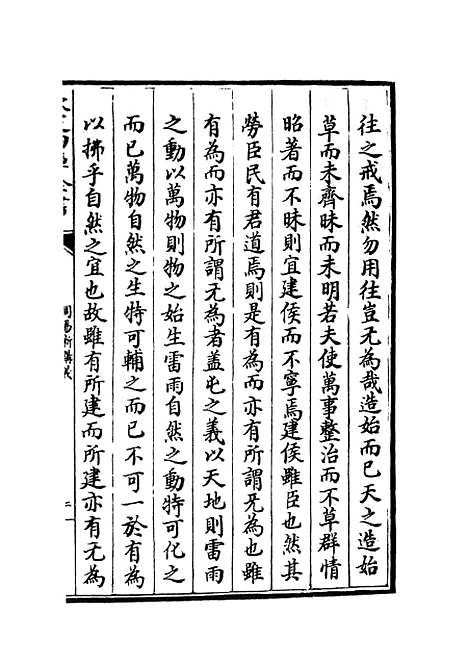 往之戒焉然勿用往豈无為哉造始而已天之造始
草而未齊昧而未明若夫使萬事整治而不草群情
昭著而不昧則宜建侯而不寧焉建侯雖臣也然其
勞臣民有君道焉則是有為而亦有所謂无為也雖
有為而亦有所謂无為者盖屯之義以天地則雷雨
之動以萬物則物之始生雷雨自然之動特可化之
而已萬物自然之生特可輔之而已不可一於有為
以拂乎自然之宜也故雖有所建而所建亦有无為
周易新講義